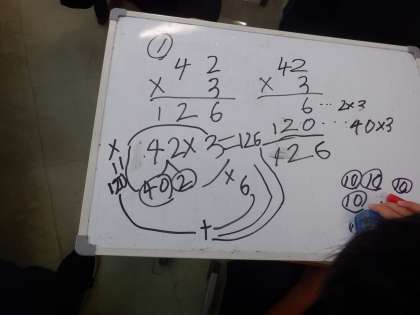 ①
42
× 3
126
42
× 3
6 … 2×3
120 … 40×3
126
× 42×3=126
11
120 40 2 × 6
+
10 10 10
10